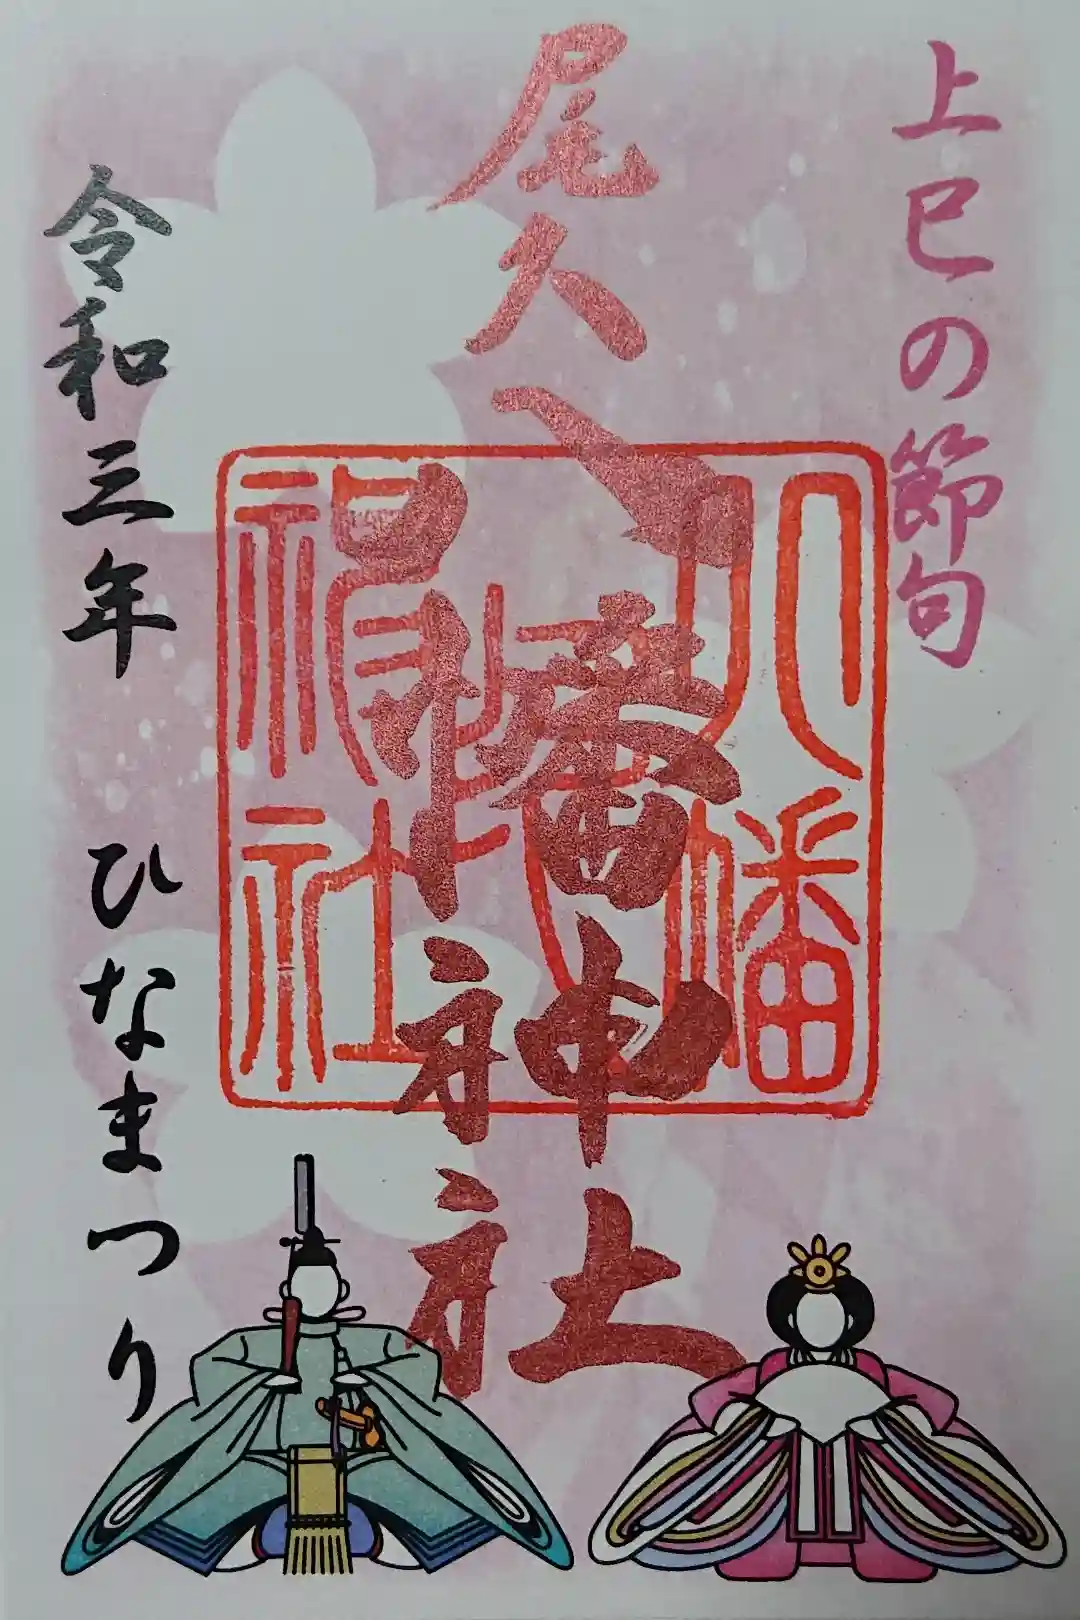 上巳の節句
尾久八幡神社
八幡
神社
令和三年 ひなまつり